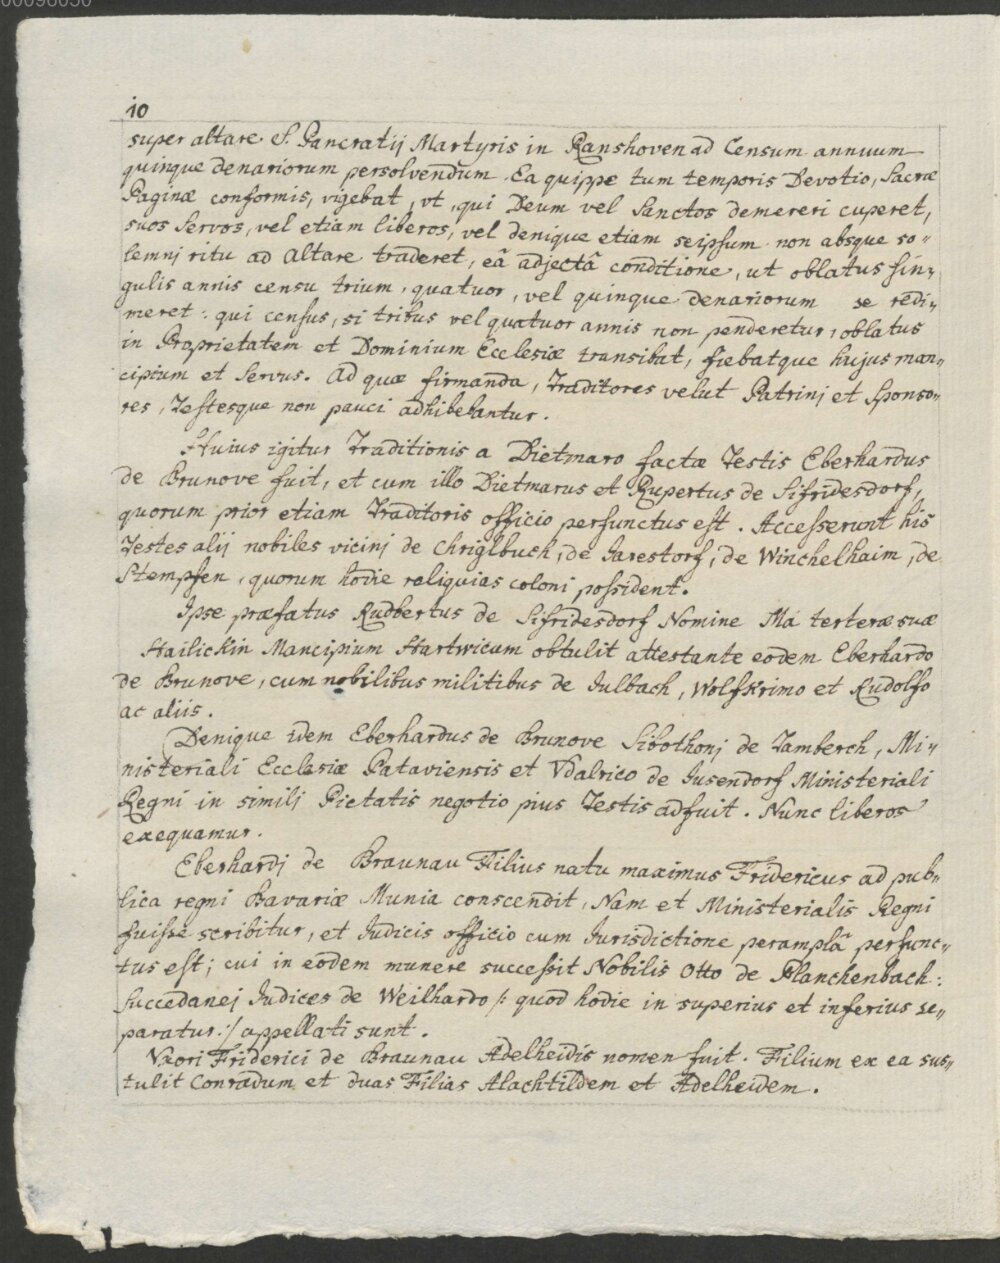 00096050
10
super altare S. Pancratij Martyris in Ranshoven ad Censum annuum
quinque denariorum persolvendum. Ea quippe tum temporis Devotio, Sacræ
Paginæ conformis, vigebat, vt, qui Deum vel Sanctos demereri cuperet,
suos Servos, vel etiam liberos, vel denique etiam seipsum non absque so=
lemnj ritu ad Altare traderet, eâ adjectâ conditione, ut oblatus sin=
gulis annis censu trium, quatuor, vel quinque denariorum se redi=
meret: qui census, si tribus vel quatuor annis non penderetur, oblatus
in Proprietatem et Dominium Ecclesiæ transibat, fiebatque hujus man=
cipium et Servus. Ad quæ firmanda, Traditores velut Patrinj et Sponso=
res, Testesque non pauci adhibebantur.
Huius igitur Traditionis a Dietmaro factæ Testis Eberhardus
de Brunove fuit, et cum illo Dietmarus et Rupertus de Sifridesdorf,
quorum prior etiam Traditoris officio perfunctus est. Accesserunt his
Testes alij nobiles vicinj de Chriglbuch, de Jarestorf, de Winchelhaim, de
Stempfen, quorum hodie reliquias coloni possident.
Ipse præfatus Rudbertus de Sifridesdorf Nomine Ma terteræ suæ
Hailickin Mancipium Hartwicum obtulit attestante eodem Eberhardo
de Brunove, cum nobilibus militibus de Julbach, Wolfkrimo et Rudolfo
ac aliis.
Denique idem Eberhardus de Brunove Sibothonj de Tamberch, Mi=
nisteriali Ecclesiæ Pataviensis et Vdalrico de Jusendorf Ministeriali
Regni in similj Pietatis negotio pius Testis adfuit. Nunc liberos
exequamur.
Eberhardj de Braunau Filius natu maximus Fridericus ad pub=
lica regni Bavariæ Munia conscendit, Nam et Ministerialis Regni
fuisse scribitur, et Judicis officio cum Jurisdictione peramplâ perfunc=
tus est; cui in eodem munere successit Nobilis Otto de Planchenbach:
succedanej Judices de Weilhardo /: quod hodie in superius et inferius se=
paratur :/ appellati sunt.
Vxori Friderici de Braunau Adelheidis nomen fuit. Filium ex ea sus=
tulit Conradum et duas Filias Alachtildem et Adelheidem.